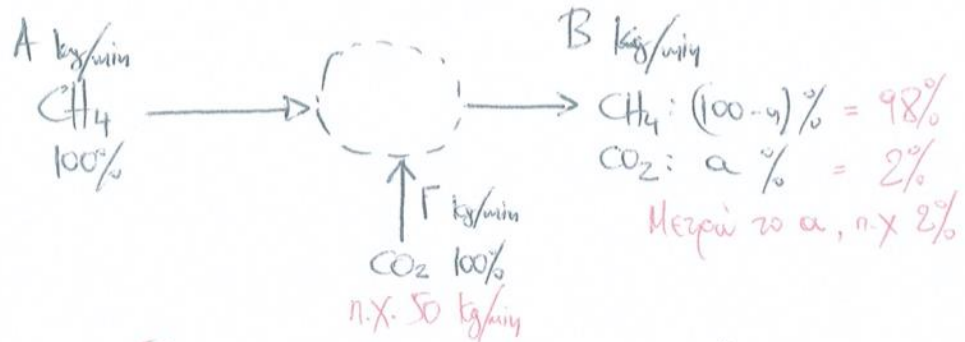 A kg/min
CH4
100%
B kg/min
CH4: (100-α)% = 98%
CO2: α % = 2%
Μετρώ το α, π.χ 2%
Γ kg/min
CO2 100%
π.χ. 50 kg/min